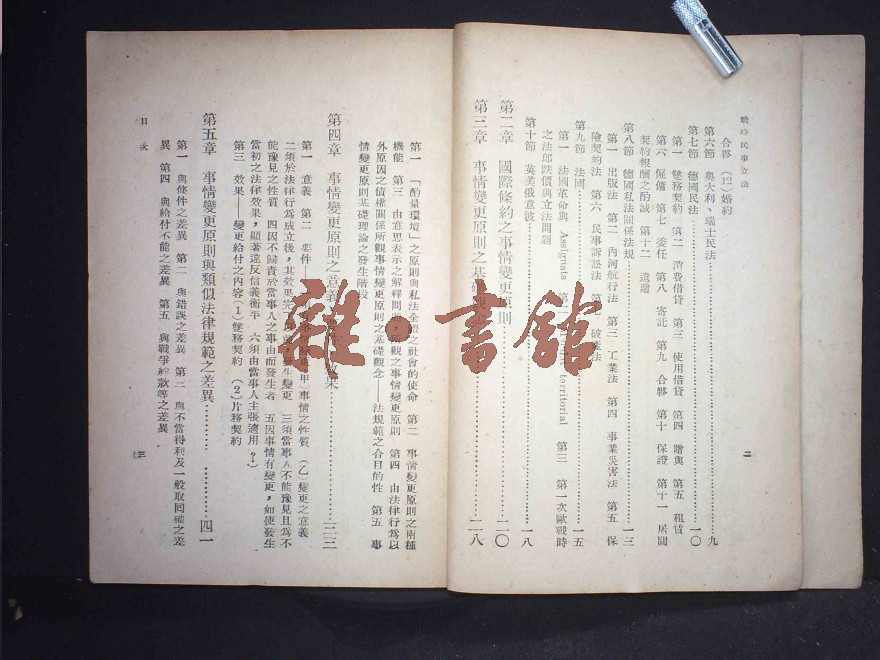 戰時民事立法
二
合夥 婚約
第六節 奧大利、瑞士民法………九
第七節 德國民法………一〇
第一 雙務契約 第二 消費借貸 第三 使用借貸 第四 贈與 第五 租賃
第六 僱傭 第七 委任 第八 寄託 第九 合夥 第十 保證 第十一 居間
契約報酬之酌減 第十二 遺贈
第八節 德國私法關係法規………一三
第一 出版法 第二 內河航行法 第三 工業法 第四 事業災害法 第五 保
險契約法 第六 民事訴訟法 第 破產法
第九節 法國………一五
第一 法國革命與 Assignats 第二 territorial 第三 第一次歐戰時
之法郎跌價與立法問題
第十節 英美俄意波………一八
第二章 國際條約之事情變更原則………二〇
第三章 事情變更原則之基礎………二八
第一 「酌量環境」之原則與私法全體之社會的使命 第二 事情變更原則之兩種
機能 第三 由意思表示之解釋問題 所觀之事情變更原則 第四 由法律行為以
外原因之債權關係所觀事情變更原則之基礎觀念——法規範之合目的性 第五 事
情變更原則基礎理論之發生階段
第四章 事情變更原則之意義 果………三三
第一 意義 第二 要件—— 甲)事情之性質 (乙)變更之意義
二須於法律行為成立後,其效果完 發生變更 三須當事人不能豫見且為不
能豫見之性質 四因不歸責於當事人之事由而發生者 五因事情有變更,如使發生
當初之法律效果,顯著違反信義衡平 六須由當事人主張適用
第三 效果——變更給付之內容(1)雙務契約 (2)片務契約
第五章 事情變更原則與類似法律規範之差異………四一
第一 與條件之差異 第二 與錯誤之差異 第三 與不當得利及一般取回權之差
異 第四 與給付不能之差異 第五 與戰爭約款等之差異
目次
三
雜·書館